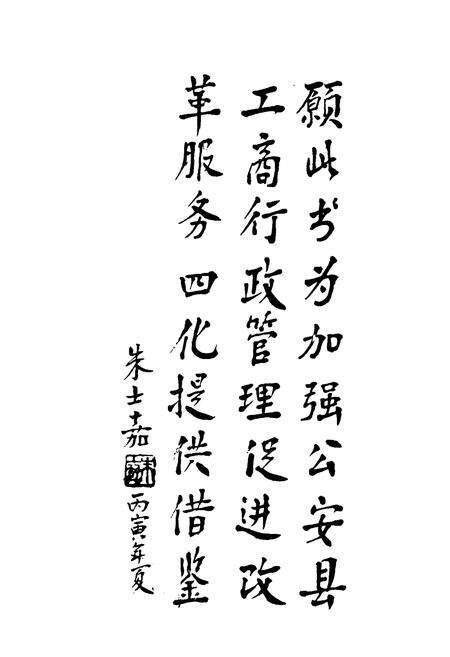 愿此书为加强公安县
工商行政管理促进改
革服务四化提供借鉴
朱士嘉
丙寅年夏